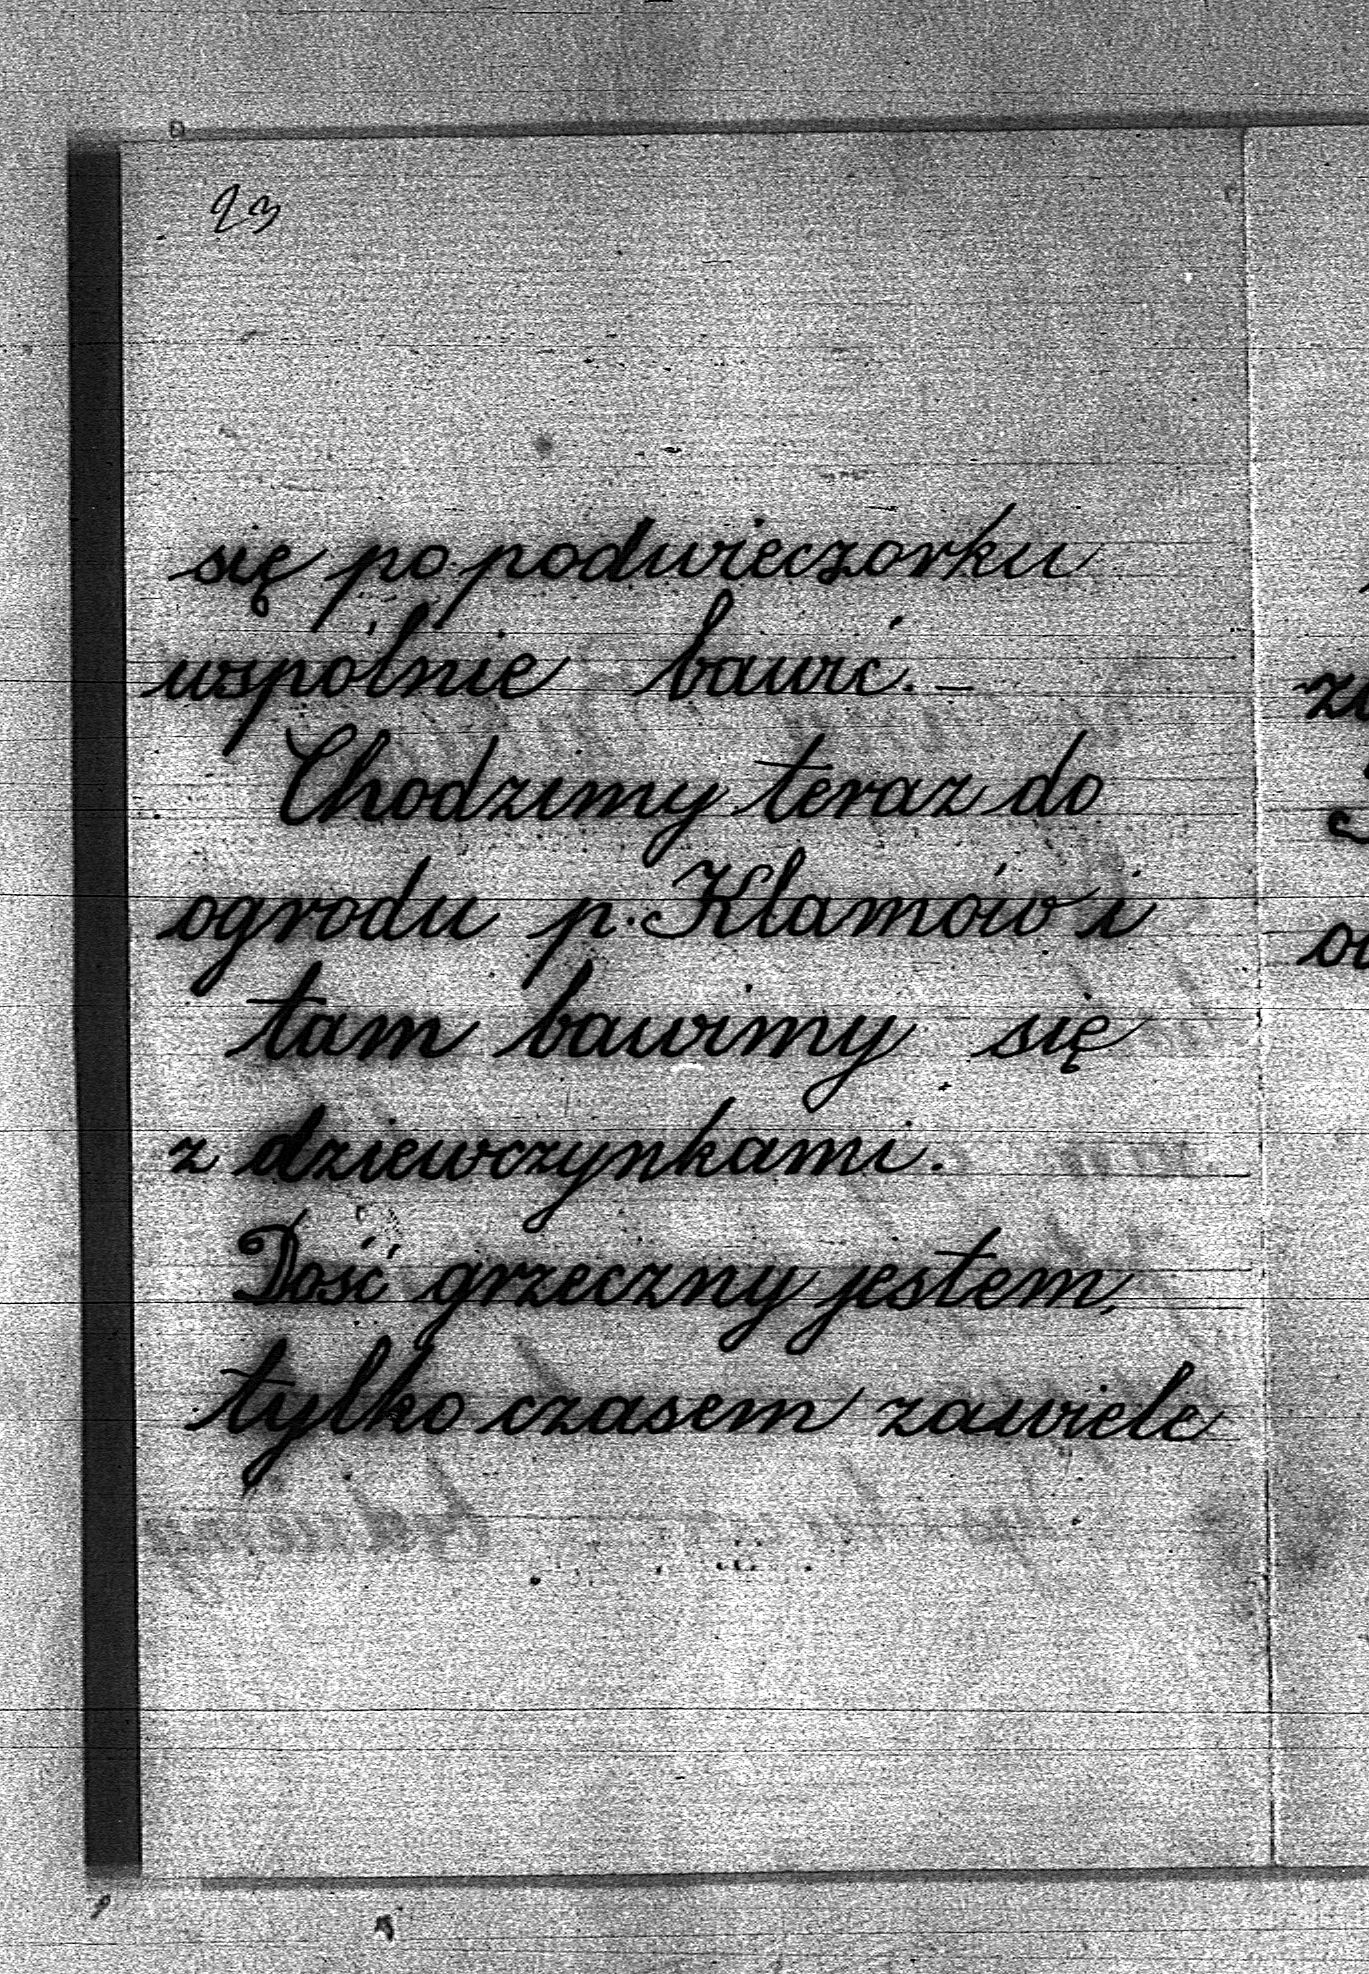 23
się po podwieczorku
wspólnie bawić. –
Chodzimy teraz do
ogrodu p. Klamów i
tam bawimy się
z dziewczynkami.
Dość grzeczny jestem,
tylko czasem zawiele